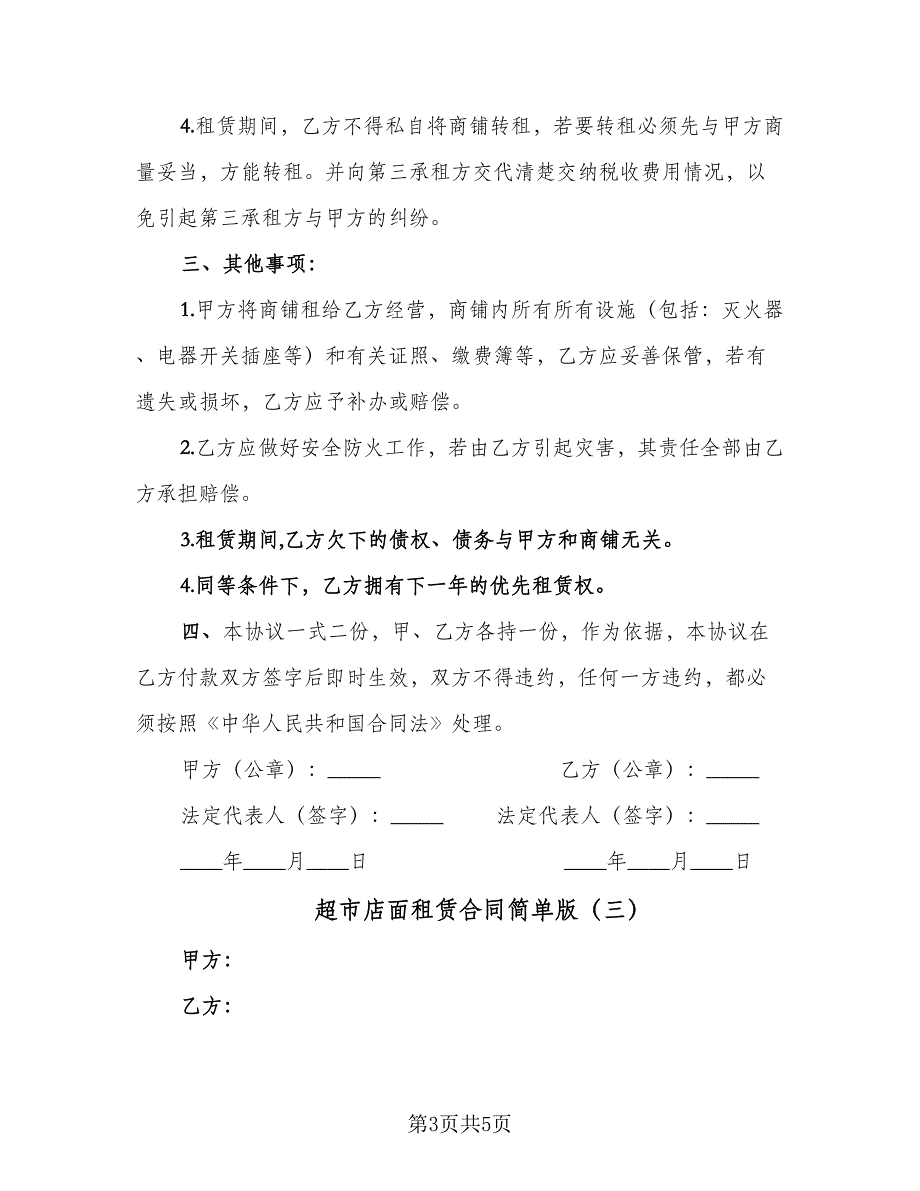 4.租赁期间，乙方不得私自将商铺转租，若要转租必须先与甲方商
量妥当，方能转租。并向第三承租方交代清楚交纳税收费用情况，以
免引起第三承租方与甲方的纠纷。
三、其他事项：
1.甲方将商铺租给乙方经营，商铺内所有所有设施（包括：灭火器
、电器开关插座等）和有关证照、缴费簿等，乙方应妥善保管，若有
遗失或损坏，乙方应予补办或赔偿。
2.乙方应做好安全防火工作，若由乙方引起灾害，其责任全部由乙
方承担赔偿。
3.租赁期间,乙方欠下的债权、债务与甲方和商铺无关。
4.同等条件下，乙方拥有下一年的优先租赁权。
四、本协议一式二份，甲、乙方各持一份，作为依据，本协议在
乙方付款双方签字后即时生效，双方不得违约，任何一方违约，都必
须按照《中华人民共和国合同法》处理。
甲方（公章）：_____ 乙方（公章）：_____
法定代表人（签字）：_____ 法定代表人（签字）：_____
____年____月____日 ____年____月____日
超市店面租赁合同简单版（三）
甲方：
乙方：
第3页共5页